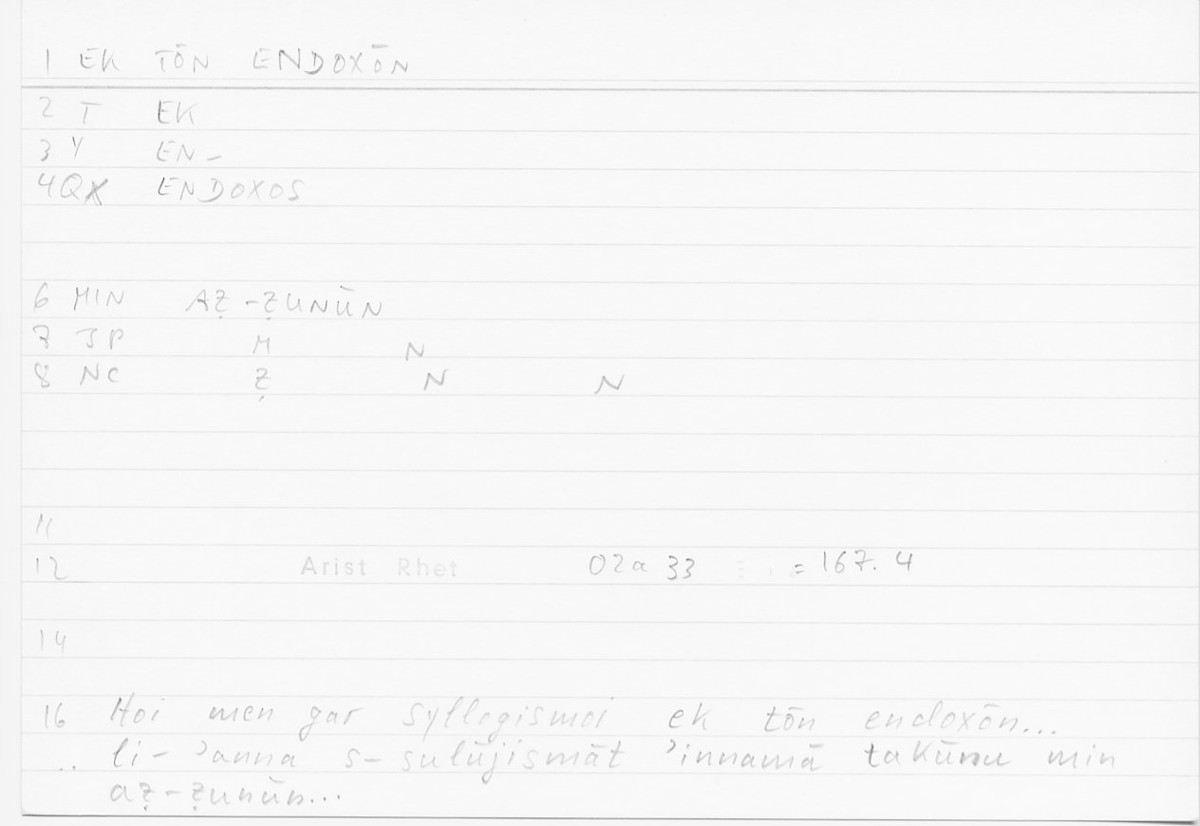 1 EK TŌN ENDOXŌN
2 T EK
3 Y EN-
4 QX ENDOXOS
6 MIN AẒ-ẒUNŪN
7 JP M N
8 NC Ẓ N N
11
12 Arist Rhet 02a 33 = 167.4
14
16 Hoi men gar syllogismoi ek tōn endoxōn...
.. li-ʾanna s-sulūjismāt ʾinnamā takūnu min
aẓ-ẓunūn...